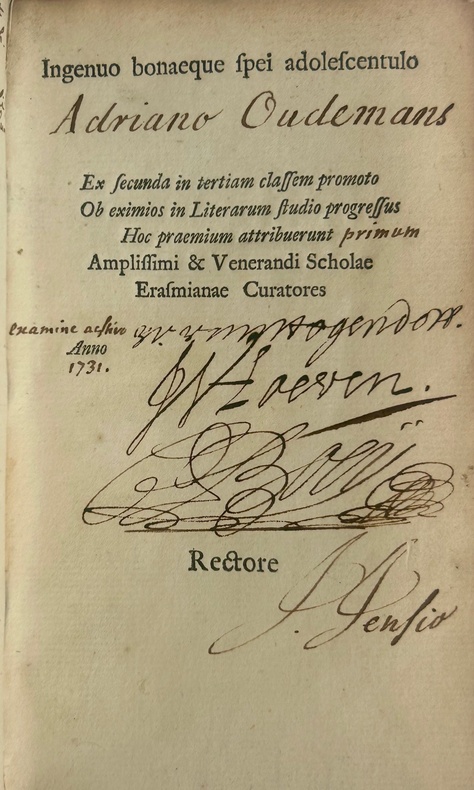 Ingenuo bonaeque ſpei adoleſcentulo
Adriano Oudemans
Ex ſecunda in tertiam claſſem promoto
Ob eximios in Literarum ſtudio progreſſus
Hoc praemium attribuerunt primum
Ampliſſimi & Venerandi Scholae
Eraſmianae Curatores
examine aestivo
Anno
1731.
Rectore
J. Jenſio